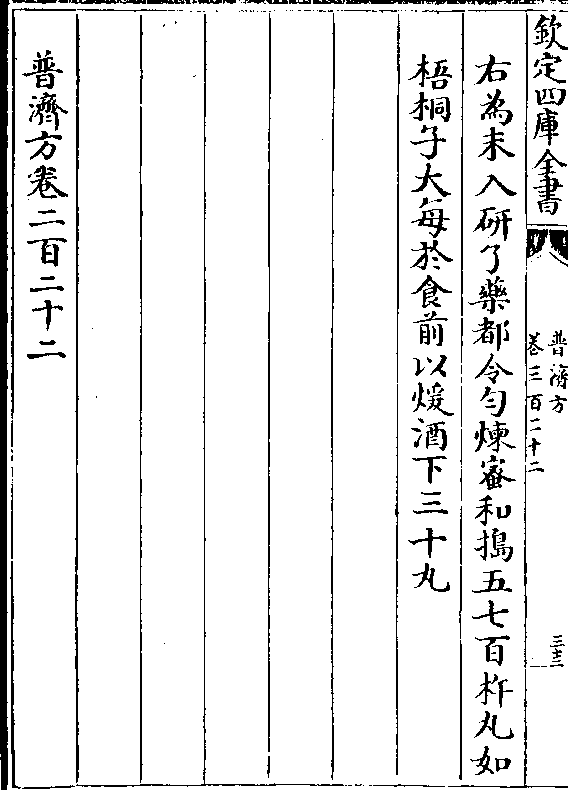 欽定四庫全書
普濟方
卷三百二十二
三十三
右為末入研了藥都令勻煉蜜和搗五七百杵丸如
梧桐子大每於食前以煖酒下三十丸
普濟方卷二百二十二